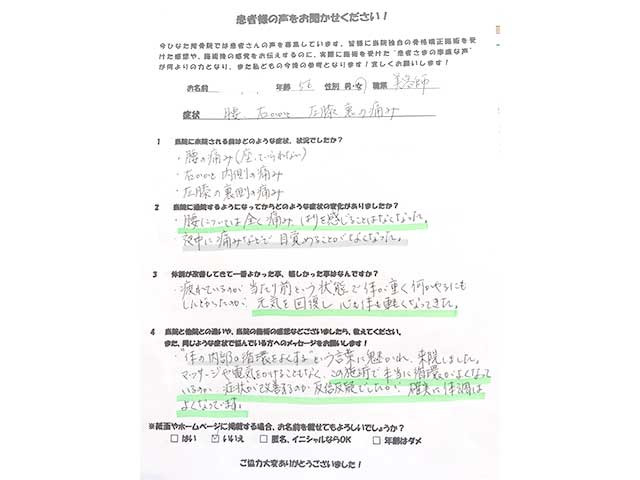 患者様の声をお聞かせください！
今ひなた整骨院では患者さんの声を募集しています。皆様に当院独自の骨格矯正施術を受
けた感想や、施術後の感覚をお伝えするのに、実際に施術を受けた“患者さまの率直な声”
が何よりの力となり、また私どもの今後の参考となります！宜しくお願いします！
お名前 年齢 56 性別 男・女 職業 美容師
症状 腰、右かかと 左膝裏の痛み
1 当院に来院される前はどのような症状、状況でしたか？
・腰の痛み(座っていられない)
・右かかと内側の痛み
・左膝の裏側の痛み
2 当院に通院するようになってからどのような症状の変化がありましたか？
・腰については全く痛み はりを感じることはなくなった。
・夜中に痛みなどで目覚めることがなくなった。
3 体調が改善してきて一番よかった事、嬉しかった事はなんですか？
・疲れているのが当たり前という状態で体が重く何かやるにも
しんどかったのが、元気を回復し心も体も軽くなってきた。
4 当院と他院との違いや、当院の施術の感想などございましたら、教えてください。
また、同じような症状で悩んでいる方へのメッセージをお願いします！
・“体の内部の循環をよくする”という言葉に魅かれ、来院しました。
マッサージや電気をかけることもなく、この施術で本当に循環がよくなって
いるのか、症状が改善するのか反信反疑でしたが、確実に体調は
よくなっています。
※紙面やホームページに掲載する場合、お名前を載せてもよろしいでしょうか？
□ はい ☑ いいえ □ 匿名、イニシャルならOK □ 年齢はダメ
ご協力大変ありがとうございました！